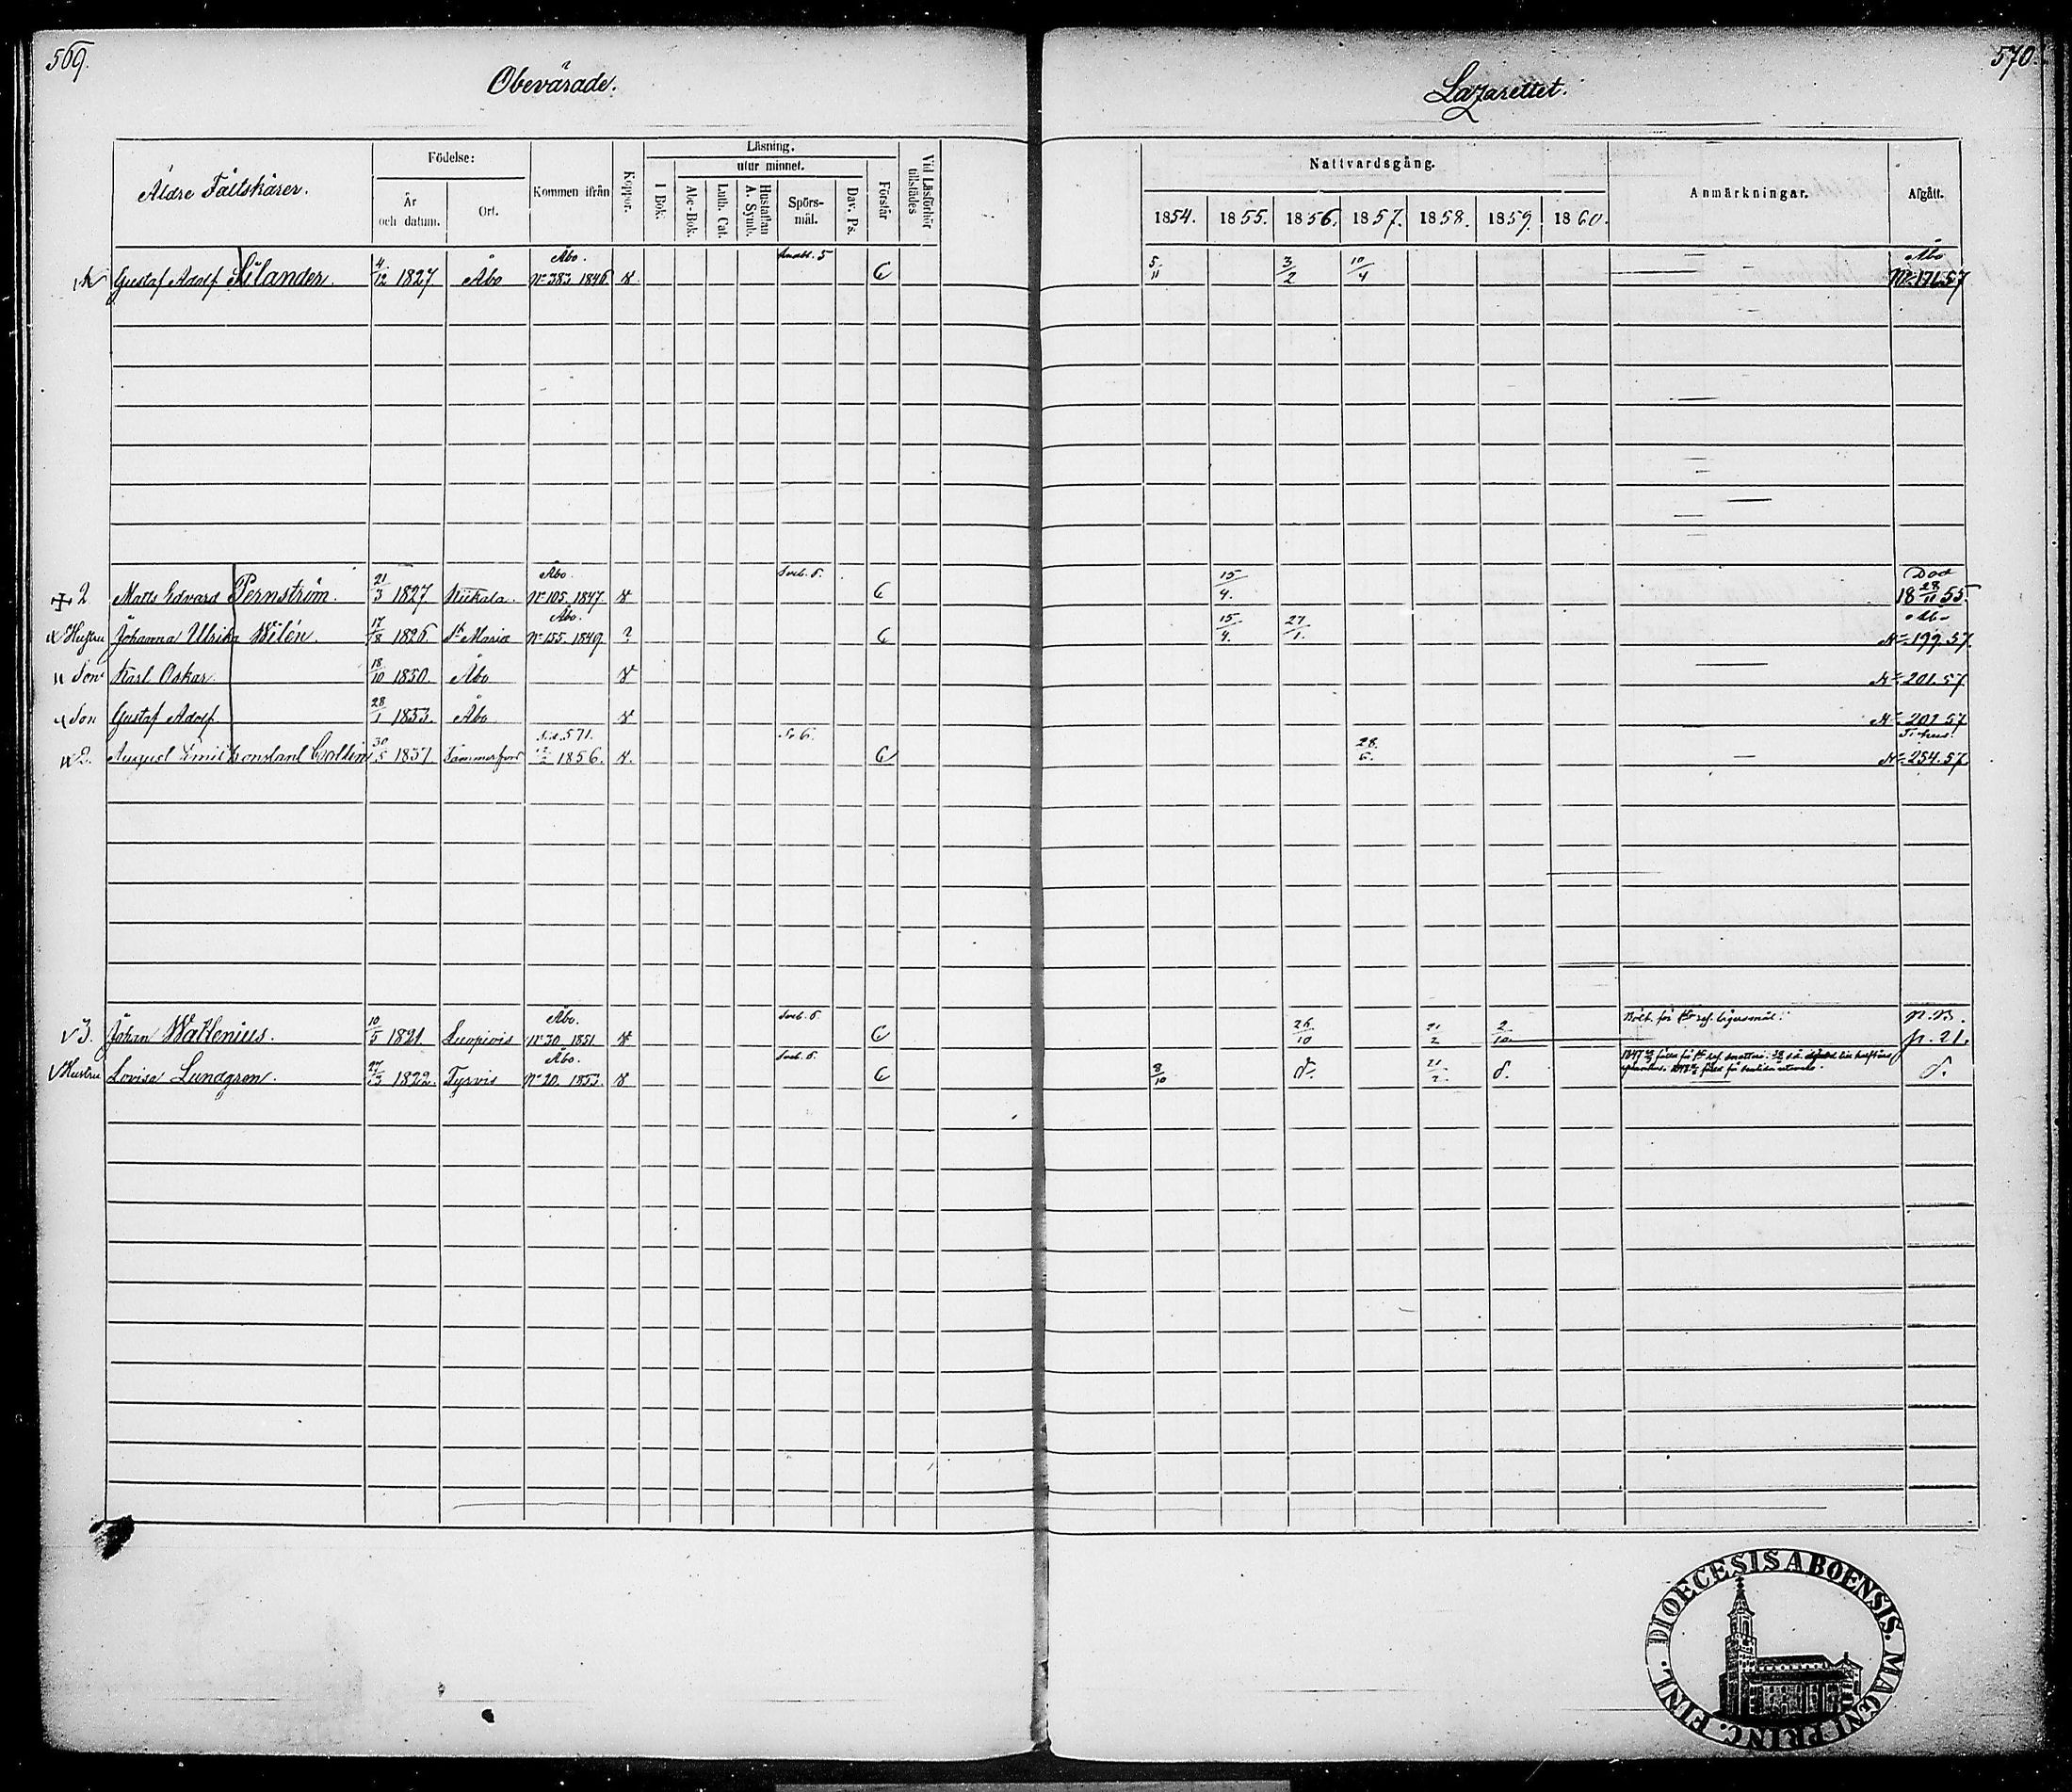 569.
Obevärade.
Äldre Fältskärer.
Födelse:
År och datum.
Ort.
Kommen ifrån
Koppor.
Läsning.
utur minnet.
I Bok.
Abc-Bok.
Luth. Cat.
Hustaflan A. Symb.
Spörs-mål.
Dav. Ps.
Förstår
Vid Läsförhör tillstädes
Gustaf Adolf Silander. 4/12 1827 Åbo Åbo. No 383 1846
2 Matts Edvard Pernström. 21/3 1827 Åbo. No 105. 1847. Sveb. 6.
Hustru Johanna Ulrika Wilén. 17/8 1826 St Maria Åbo. No 155. 1849. ?
Son Karl Oskar. 18/10 1850. Åbo
Son Gustaf Adolf 28/1 1853. Åbo
2. August Emil Constant 30/5 1837 Tammerfors 571. 1856.
3. Johan Wallenius. 10/5 1821. Luopiois Åbo. No 30. 1851. Sveb. 6.
Hustru Lovisa Lundgren. 27/3 1822. Tyrvis Åbo. No 20. 1853. Sveb. 6.
570.
Lazarettet.
Nattvardsgång.
1854. 1855. 1856. 1857. 1858. 1859. 1860.
Anmärkningar.
Afgått.
5/11 3/2 10/4 Åbo No 171.57
15/4. Död 18 28/11 55.
15/4. 27/1. Åbo No 199.57.
No 201.57
No 201.57
28/6. No 254.57
26/10 21/2 2/10 p. 21.
8/10 d. 21/2. d. d.
FINL. DIOECESIS ABOENSIS. MAGNI PRINC.